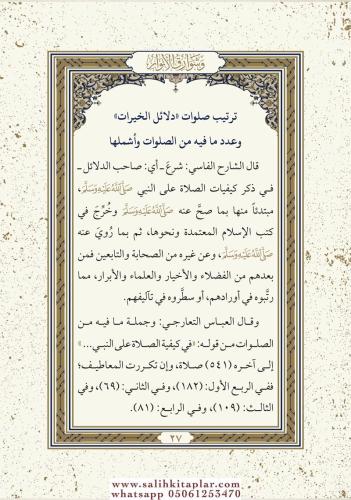 وشوارق الأنوار
ترتيب صلوات «دلائل الخيرات»
وعدد ما فيه من الصلوات وأشملها
قال الشارح الفاسي: شرعَ ـ أي: صاحب الدلائل ـ
في ذكر كيفيات الصلاة على النبي ﷺ،
مبتدئاً منها بما صحَّ عنه ﷺ وخُرِّج في
كتب الإسلام المعتمدة ونحوها، ثم بما رُويَ عنه
ﷺ، وعن غيره من الصحابة والتابعين فمن
بعدهم من الفضلاء والأخيار والعلماء والأبرار، مما
رتَّبوه في أورادهم، أو سطَّروه في تآليفهم.
وقال العباس التعارجي: وجملة ما فيه من
الصلوات من قوله: «في كيفية الصلاة على النبي...»
إلى آخره (٥٤١) صلاة، وإن تكررت المعاطيف؛
ففي الربع الأول: (١٨٢)، وفي الثاني: (٦٩)، وفي
الثالث: (١٠٩)، وفي الرابع: (٨١).
٢٧
www.salihkitaplar.com
whatsapp 05061253470